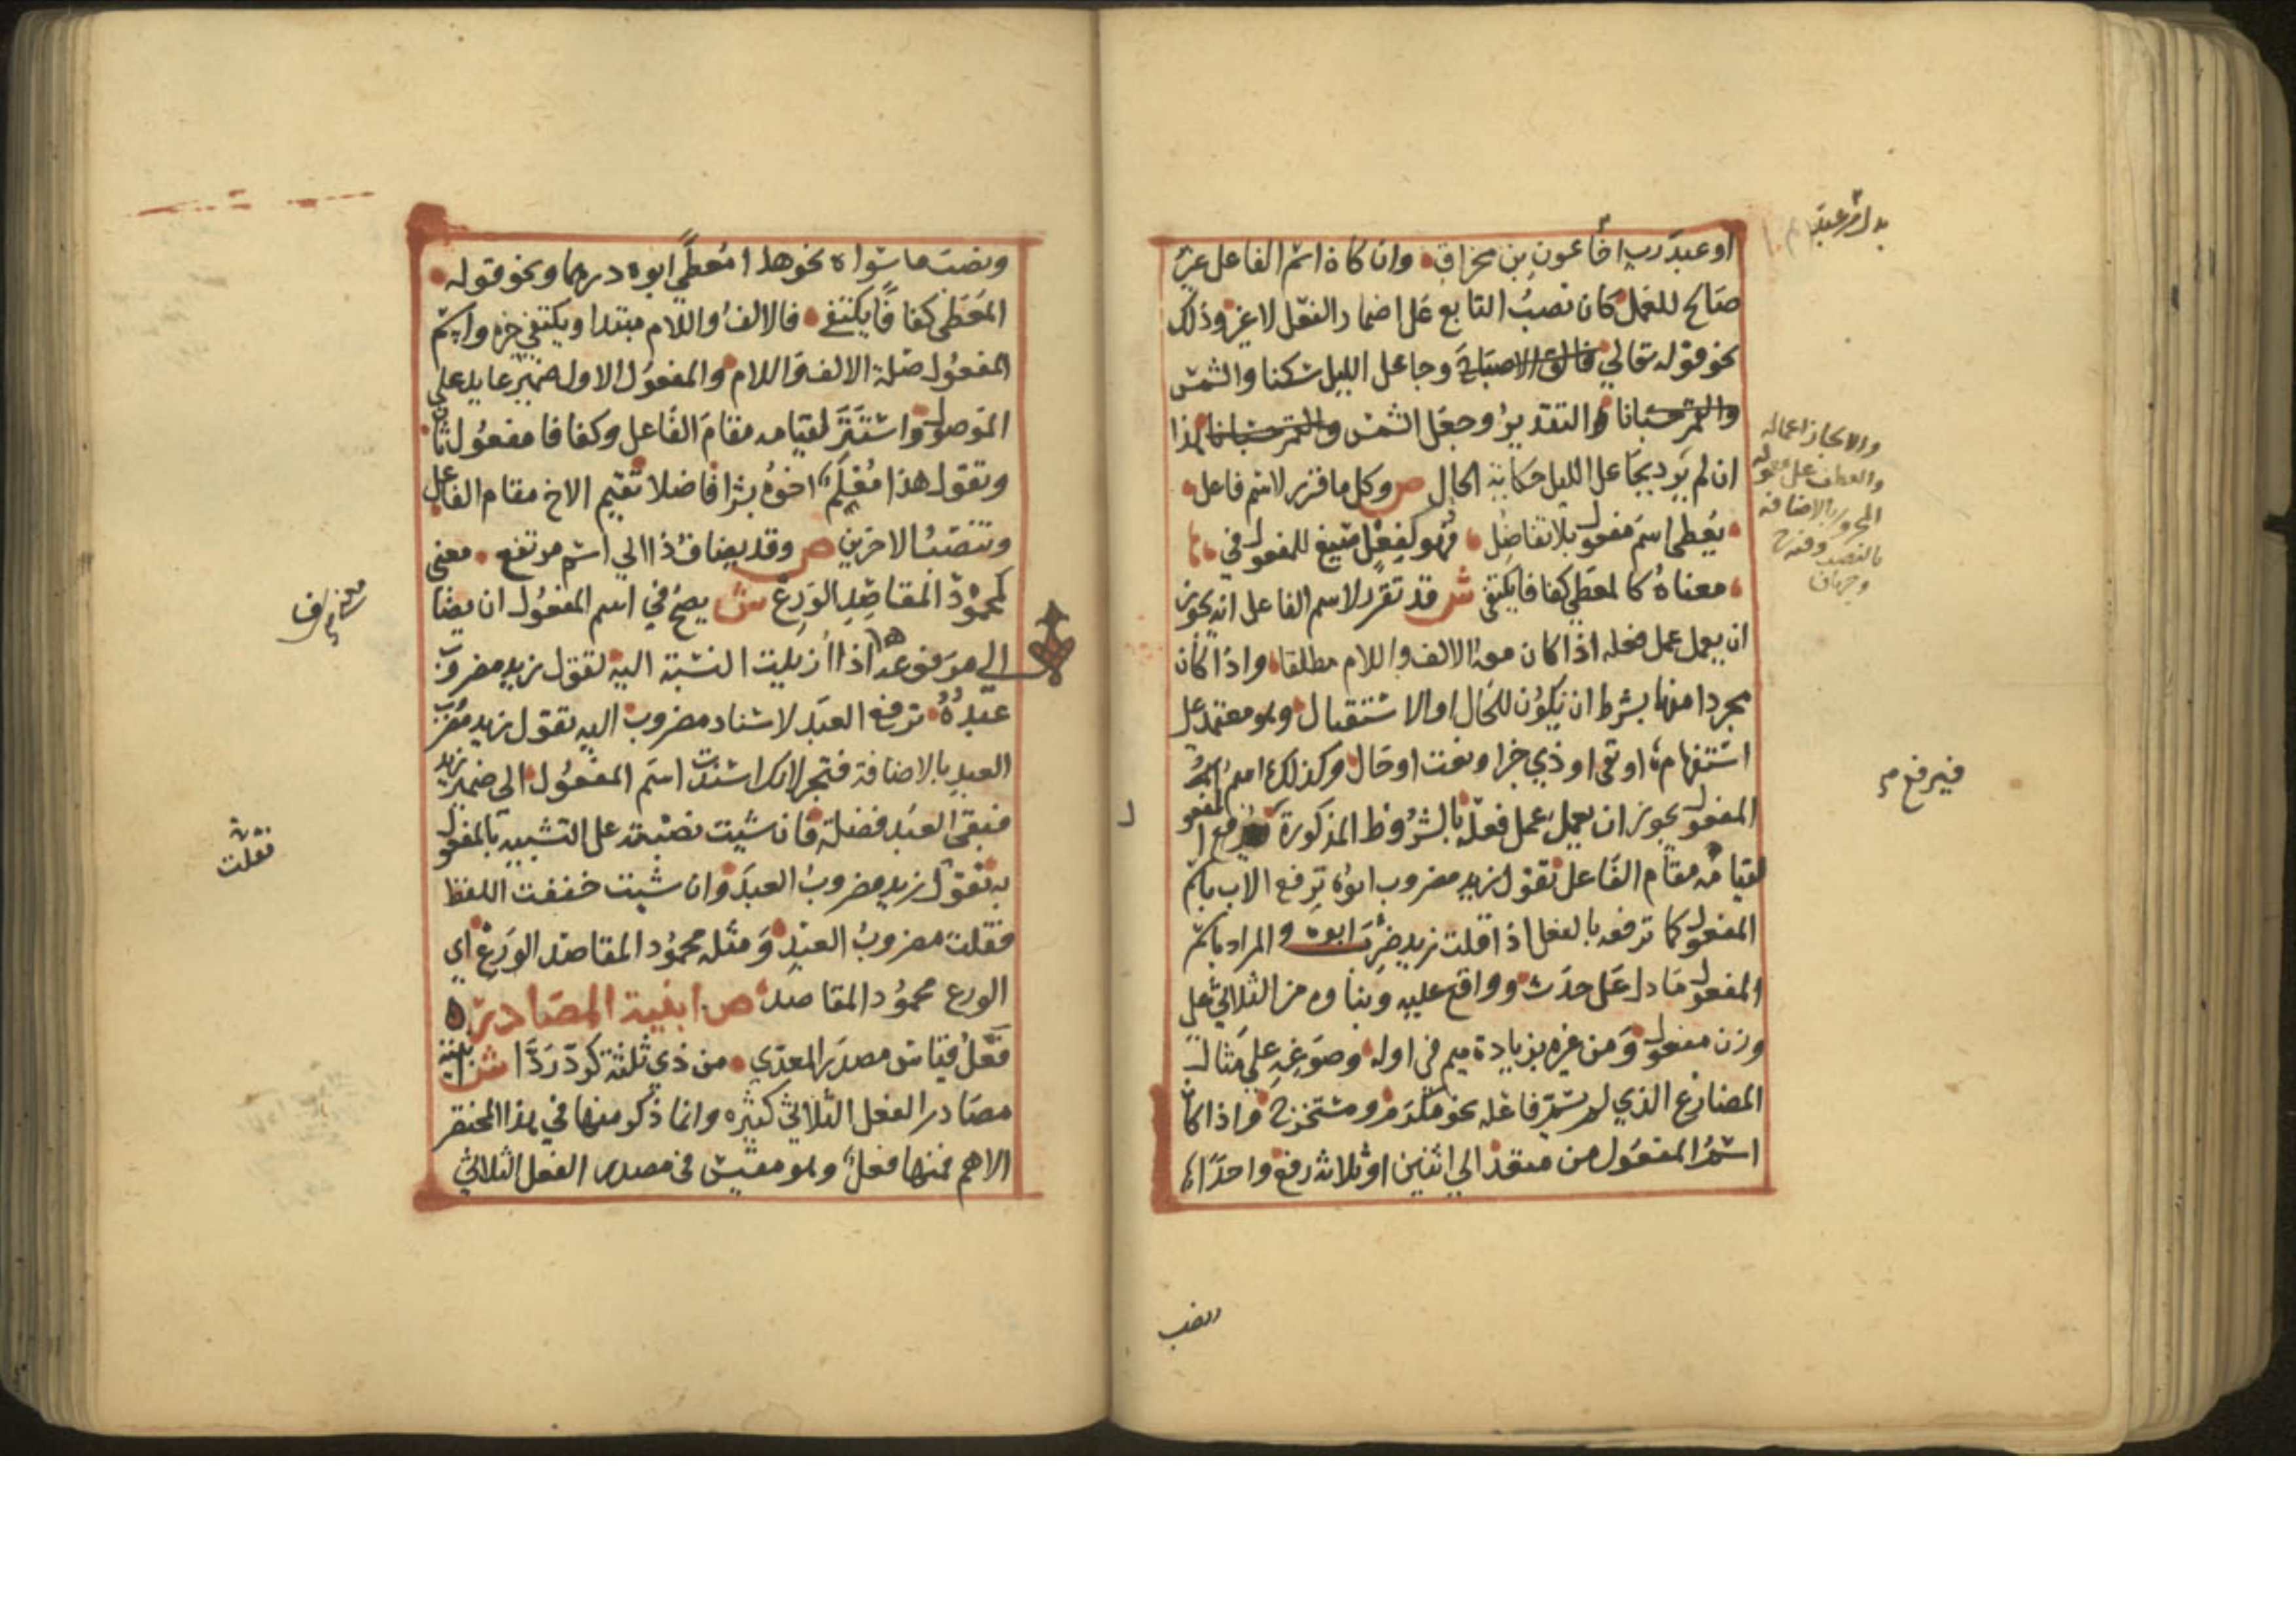 او عبدَ رب اخا عون بن مخراق وان كان اسم الفاعل غير
صالح للعمل كان نصبُ التابع على اضمار الفعل لا غير وذلك
نحو قوله تعالي فالق الاصباح وجاعل الليل سكنا والشمس
والقمر حسبانا والتقدير وجعل الشمس والقمر حسبانا هذا
ان لم يرد بجاعل الليل حكاية الحال ص وكل ما قرر لاسم فاعل
يُعطى اسمَ مفعول بلا تفاضُل فهو كفعل صيغ للمفعول في
معناهُ كالمعطى كفافا يكتفي ش قد تقرر لاسم الفاعل انه يجوز
ان يعمل عمل فعله اذا كان معه الالف واللام مطلقا واذا كان
مجردا منها بشرط ان يكون للحال او الاستقبال وهو معتمد على
استفهام او نفي او ذي خبر او نعت او حال وكذلك اسمُ
المفعول يجوز ان يعمل عمل فعله بالشروط المذكورة المفعول
لقيامه مقام الفاعل تقول زيد مضروب ابوه ترفع الاب باسم
المفعول كما ترفعه بالفعل اذا قلت زيد ضُرِبَ ابوه والمراد باسم
المفعول ما دل على حدث وواقع عليه وبناوه من الثلاثي على
وزن مفعول ومن غيره بزيادة ميم في اوله وصوغه على مثال
المضارع الذي لم يسمّ فاعله نحو مكرم ومستخرج واذا كان
اسمُ المفعول من متعد الي اثنين او ثلاثة رفع واحدا
والا جاز اعماله
والعطف على معموله
المجرور بالاضافة
بالنصب
وجهان
فيرفع
ونصب
ونصب ما سواه نحو هذا مُعطًى ابوه درهما ونحو قوله
المعطى كفافًا يكتفي فالالفُ واللام مبتدا ويكتفي خبره واسم
المفعول صلة الالف واللام والمفعول الاول ضمير عايد على
الموصول واستتر لقيامه مقام الفاعل وكفافا مفعول ثان
وتقول هذا مُعْلَم اخوُه بشرا فاضلا تقيم الاخ مقام الفاعل
وتنصبُ الاخرين ص وقد يضافُ ذا الي اسم مرتفع معني
كمحمودُ المقاصدِ الورع ش يصح في اسم المفعول ان يضا
الي مرفوعه اذا ازيلت النسبة اليه تقول زيد مضروبٌ
عبدُهُ ترفع العبد لاسناد مضروب اليه تقول زيد مضروب
العبدِ بالاضافة فتجر لانك اسندت اسم المفعول الى ضمير زيد
فبقى العبد فضلة فان شيت نصبته على التشبيه بالمفعول
به تقول زيد مضروبُ العبدَ وان شيت خففت اللفظ
فقلت مضروبُ العبدِ ومثله محمُود المقاصد الورع اي
الورع محمود المقاصد ص ابنية المصادر
فَعْلٌ قياس مصدر المعدّي من ذي ثلثة كردّ رَدَّا ش ابنية
مصادر الفعل الثلاثي كثيره وانما ذكر منها في هذا المختصر
الاهم فمنها فعلٌ وهو مقيس في مصدر الفعل الثلاثي
فقلت